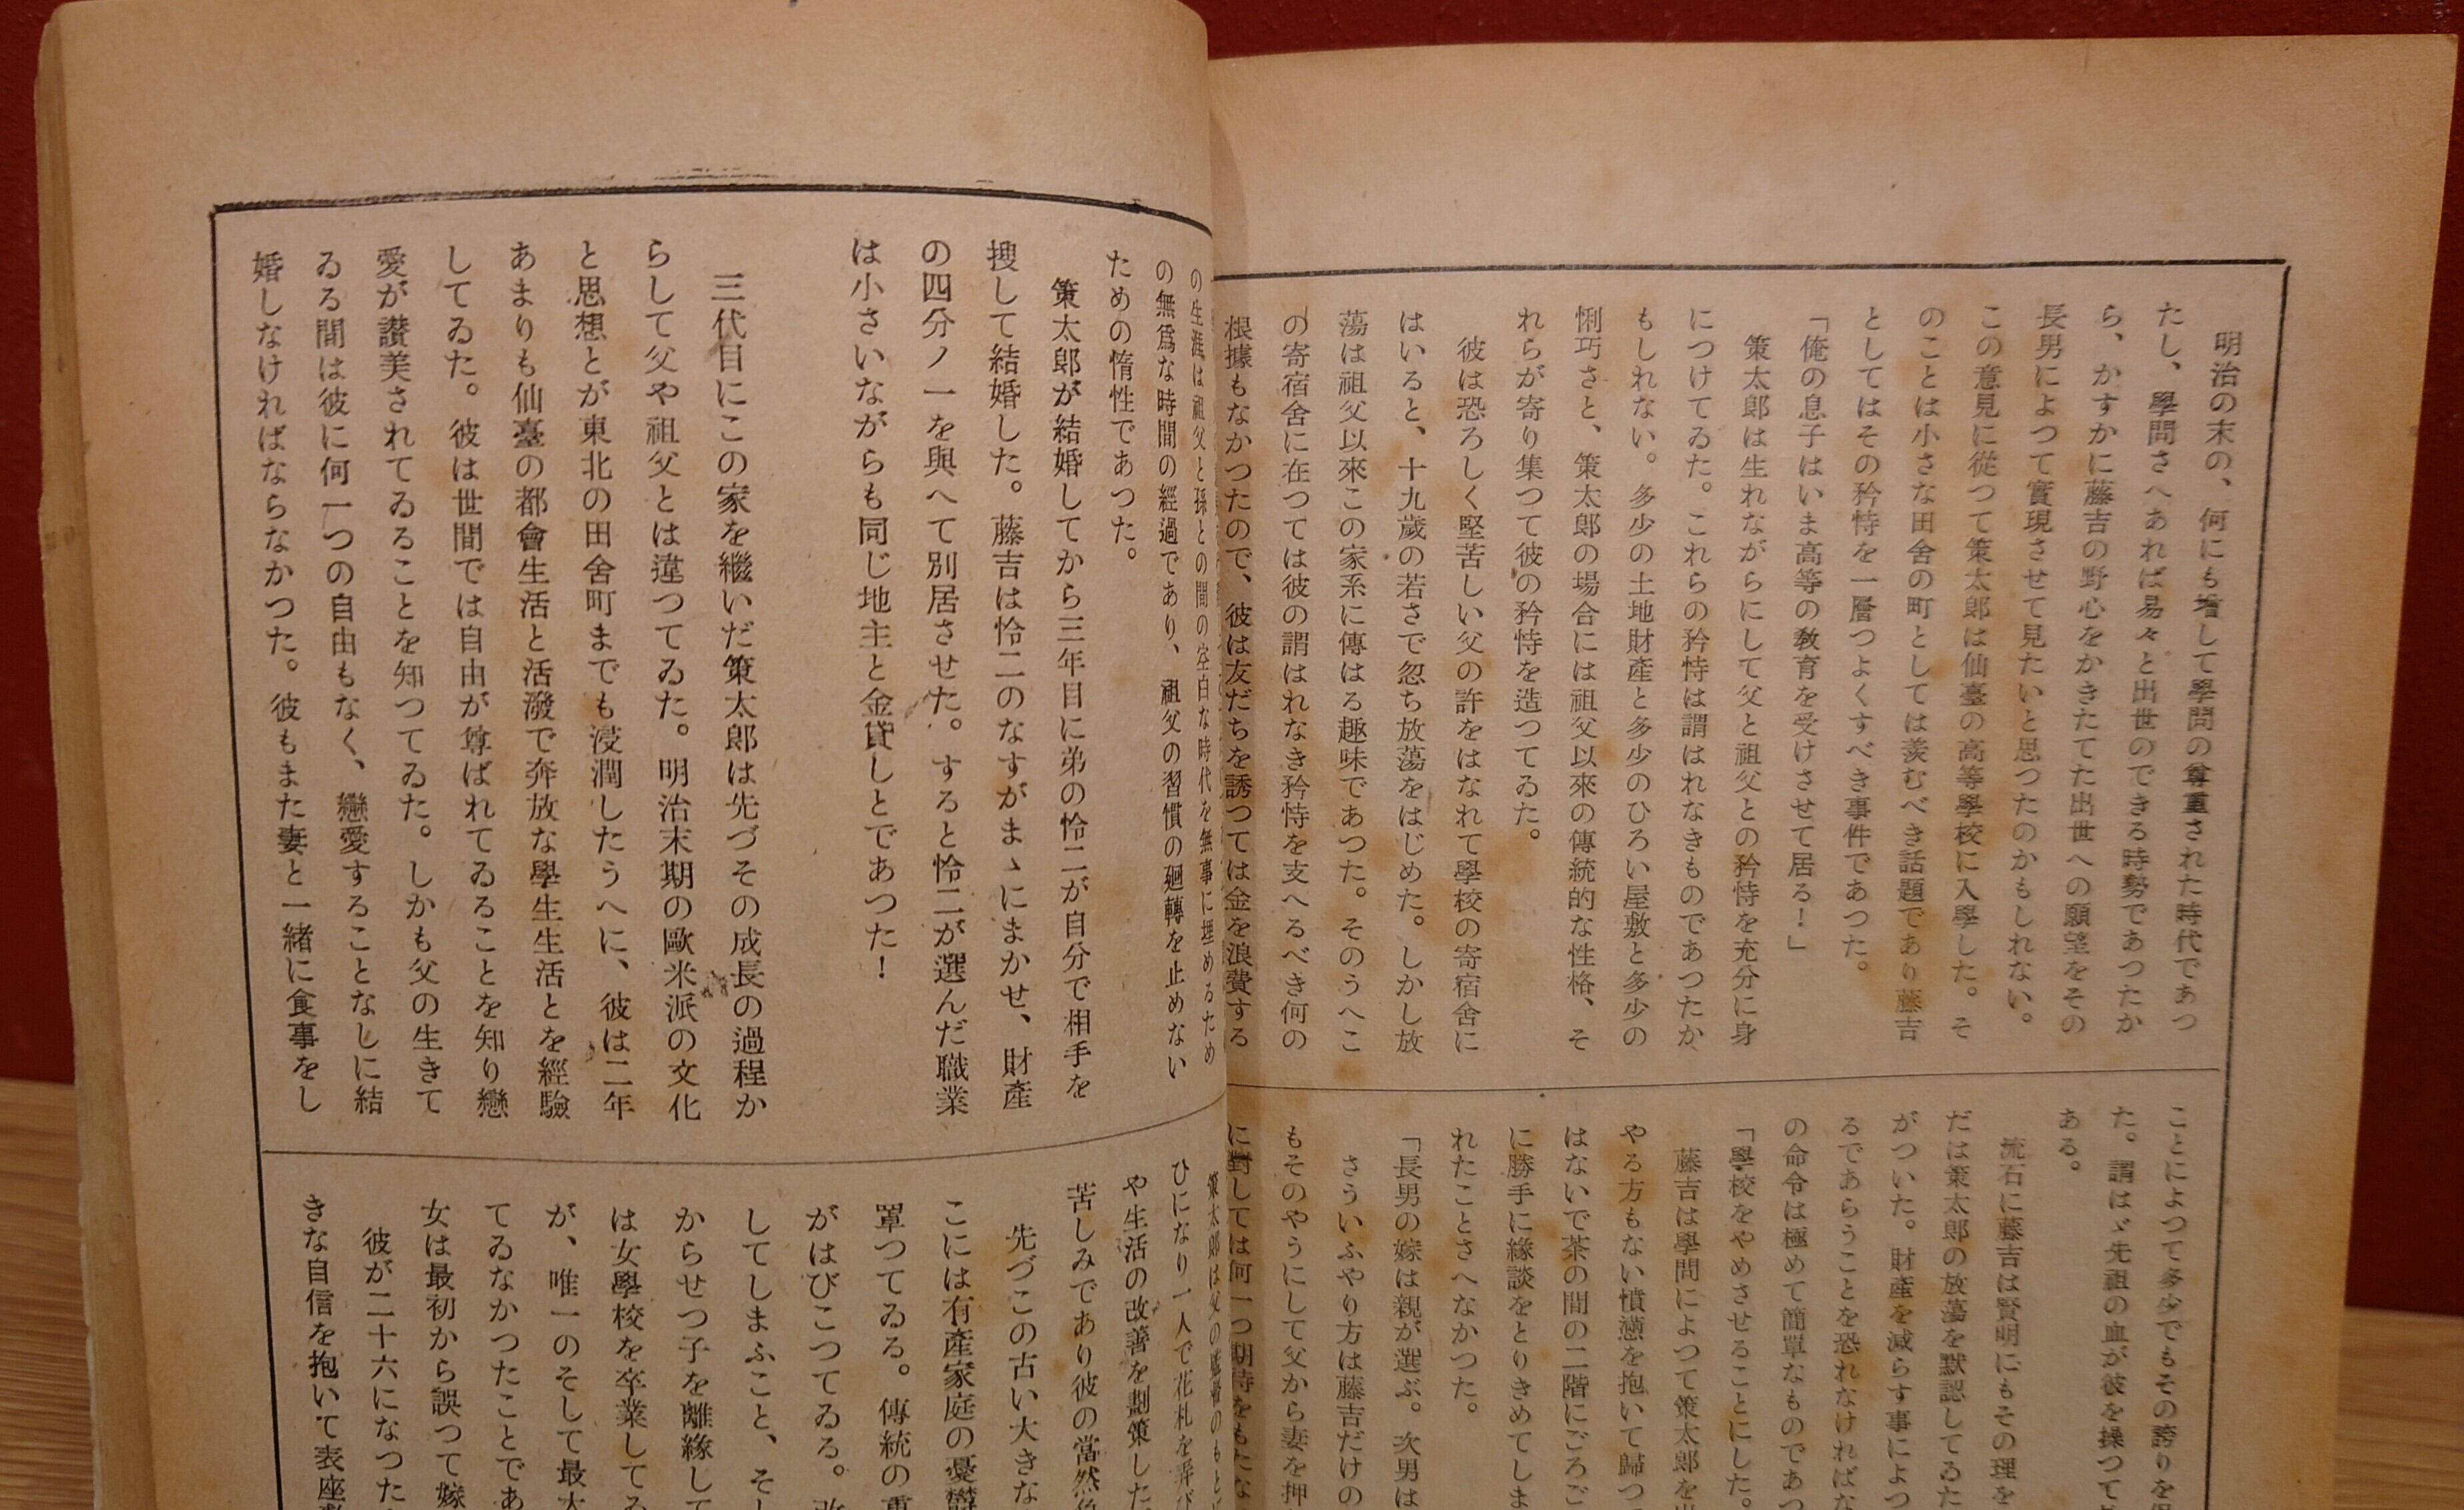 明治の末の、何にも增して學問の尊重された時代であつ
たし、學問さへあれば易々と出世のできる時勢であつたか
ら、かすかに藤吉の野心をかきたてた出世への願望をその
長男によつて實現させて見たいと思つたのかもしれない。
この意見に從つて策太郞は仙臺の高等學校に入學した。そ
のことは小さな田舍の町としては羨むべき話題であり藤吉
としてはその矜恃を一層つよくすべき事件であつた。
「俺の息子はいま高等の敎育を受けさせて居る！」
策太郞は生れながらにして父と祖父との矜恃を充分に身
につけてゐた。これらの矜恃は謂はれなきものであつたか
もしれない。多少の土地財產と多少のひろい屋敷と多少の
悧巧さと、策太郞の場合には祖父以來の傳統的な性格、そ
れらが寄り集つて彼の矜恃を造つてゐた。
彼は恐ろしく堅苦しい父の許をはなれて學校の寄宿舍に
はいると、十九歲の若さで忽ち放蕩をはじめた。しかし放
蕩は祖父以來この家系に傳はる趣味であつた。そのうへこ
の寄宿舍に在つては彼の謂はれなき矜恃を支へるべき何の
根據もなかつたので、彼は友だちを誘つては金を浪費する
ことによつて多少でもその誇りを
た。謂はゞ先祖の血が彼を操つて
ある。
流石に藤吉は賢明にもその理を
だは策太郞の放蕩を默認してゐた
がついた。財產を減らす事によつ
るであらうことを恐れなければな
の命令は極めて簡單なものであつ
「學校をやめさせることにした。
藤吉は學問によつて策太郞を
やる方もない憤懣を抱いて歸つ
はないで茶の間の二階にごろご
に勝手に緣談をとりきめてしま
れたことさへなかつた。
「長男の嫁は親が選ぶ。次男は
さういふやり方は藤吉だけの
もそのやうにして父から妻を押
に對しては何一つ期待をもたな
の生涯は祖父と孫との間の空白な時代を無事に埋めるため
の無爲な時間の經過であり、祖父の習慣の廻轉を止めない
ための惰性であつた。
策太郞が結婚してから三年目に弟の怜二が自分で相手を
搜して結婚した。藤吉は怜二のなすがまゝにまかせ、財產
の四分ノ一を與へて別居させた。すると怜二が選んだ職業
は小さいながらも同じ地主と金貸しとであつた！
三代目にこの家を繼いだ策太郞は先づその成長の過程か
らして父や祖父とは違つてゐた。明治末期の歐米派の文化
と思想とが東北の田舍町までも浸潤したうへに、彼は二年
あまりも仙臺の都會生活と活潑で奔放な學生生活とを經驗
してゐた。彼は世間では自由が尊ばれてゐることを知り戀
愛が讚美されてゐることを知つてゐた。しかも父の生きて
ゐる間は彼に何一つの自由もなく、戀愛することなしに結
婚しなければならなかつた。彼もまた妻と一緒に食事をし
策太郞は父の
ひになり一人で花札を弄び
や生活の改善を劃策した
苦しみであり彼の當然
先づこの古い大きな
こには有產家庭の憂鬱
罩つてゐる。傳統の重
がはびこつてゐる。
してしまふこと、そ
からせつ子を離緣して
は女學校を卒業してゐ
が、唯一のそして最大
てゐなかつたことであ
女は最初から誤つて嫁
彼が二十六になつた
きな自信を抱いて表座